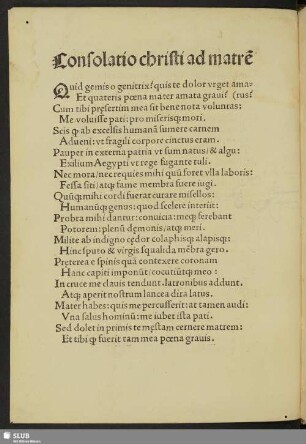 Consolatio christi ad matrē
Quid gemis o genitrix? quis te dolor vrget ama-
Et quateris pœna mater amata graui? (rus?
Cum tibi presertim mea sit bene nota voluntas:
Me voluisse pati: pro miserisq; mori.
Scis q; ab excelsis humanā sumere carnem
Adueni: vt fragili corpore cinctus eram.
Pauper in externa patria vt sum natus: & algu:
Exilium Aegypti: vt rege fugante tuli.
Nec mora: nec requies mihi quū foret vlla laboris:
Fessa siti: atq; fame membra fuere iugi.
Quūq; mihi cordi fuerat curare misellos:
Humanūq; genus: quod scelere interiit:
Probra mihi dantur: conuicia: meq; ferebant
Potorem: plenū dęmonis: atq; meri.
Milite ab indigno cędor colaphisq; alapisq;:
Hinc sputo & virgis squalida mēbra gero.
Pręterea e spinis quā contexere coronam
Hanc capiti imponūt: cocutiūtq; meo:
In cruce me clauis tendunt. latronibus addunt.
Atq; aperit nostrum lancea dira latus.
Mater habes: quis me percusserit: at tamen audi:
Vna salus hominū: me iubet ista pati.
Sed dolet in primis te męstam cernere matrem:
Et tibi q; fuerit tam mea pœna grauis.
SLUB